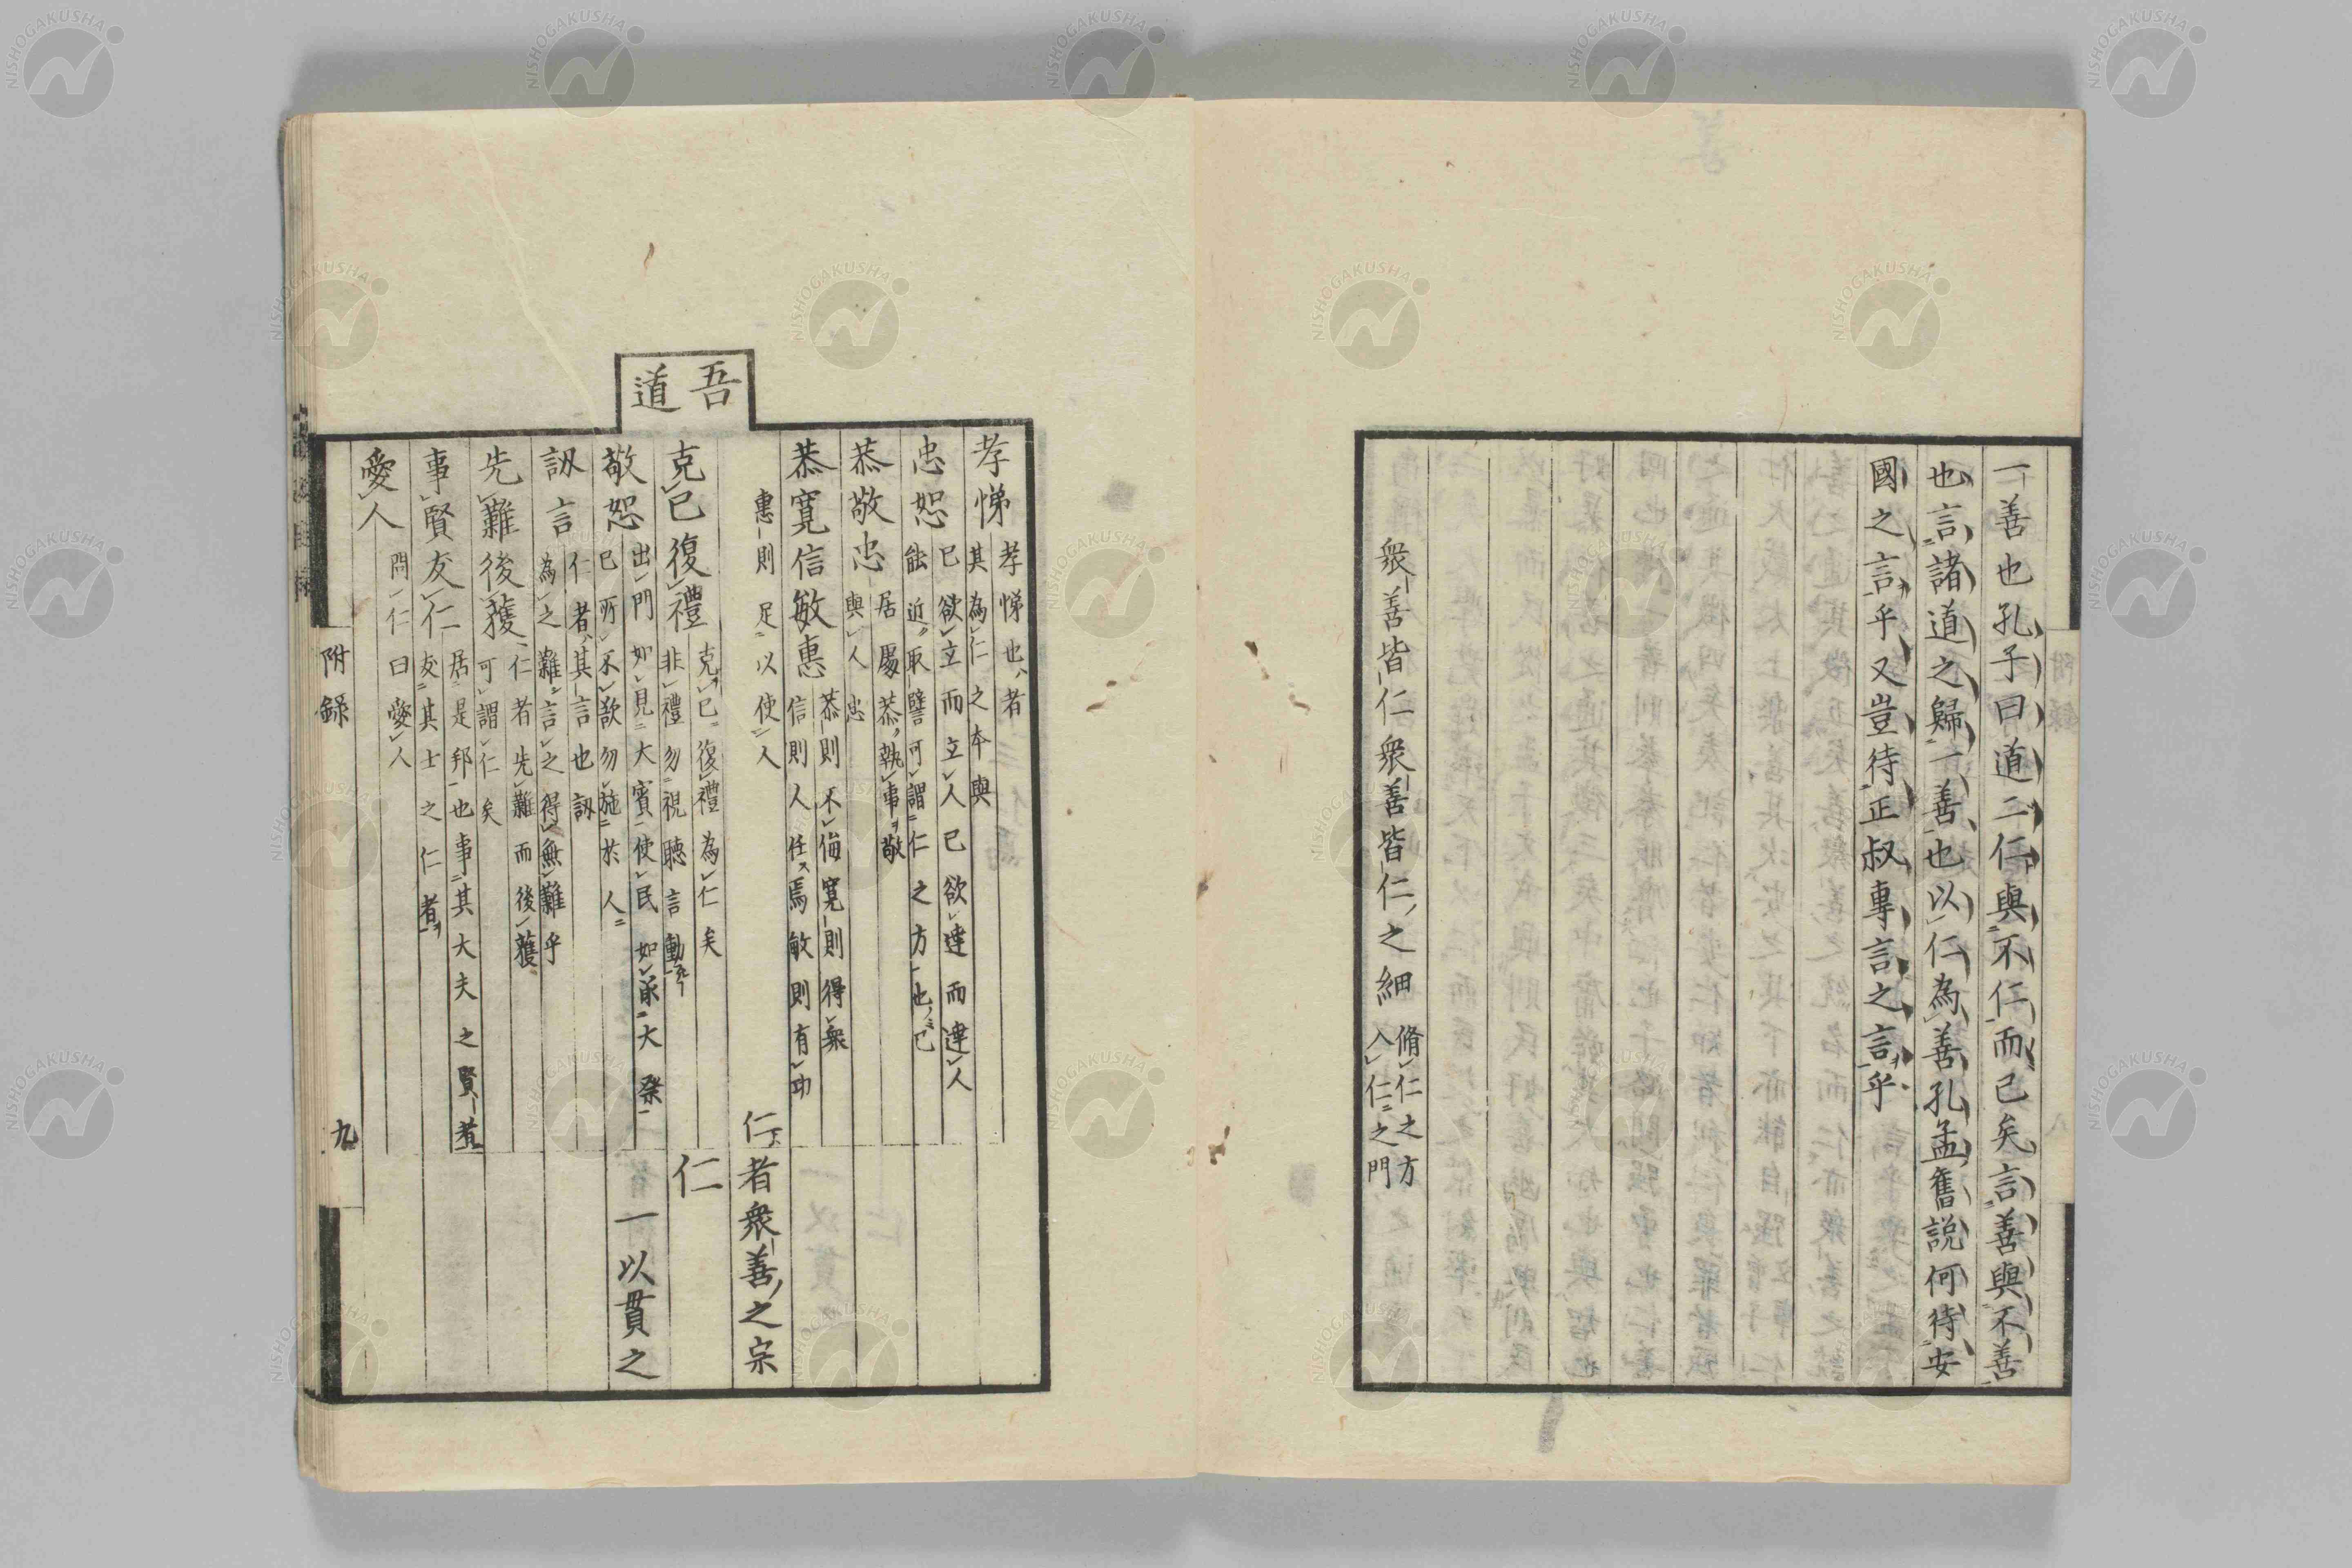 一善也孔子曰道二仁與不仁而已矣言善與不善
也言諸道之歸一善也以仁為善孔孟舊説何待安
國之言乎又豈待正叔專言之言乎
衆善皆仁衆善皆仁之細
脩仁之方
入仁之門
吾道
孝悌
孝悌也者
其為仁之本與
忠恕
已欲立而立人已欲達而達人
能近取譬可謂仁之方也已
恭敬忠
居處恭執事敬
與人忠
恭寬信敏惠
恭則不侮寬則得衆
信則人任焉敏則有功
惠則足以使人
仁者衆善之宗
克已復禮
克已復禮為仁矣
非禮勿視聽言動
仁
敬恕
出門如見大賓使民如承大祭
已所不欲勿施於人
一以貫之
訒言
仁者其言也訒
為之難言之得無難乎
先難後獲
仁者先難而後獲
可謂仁矣
事賢友仁
居是邦也事其大夫之賢者
友其士之仁者
愛人
問仁曰愛人
附錄
九
NISHOGAKUSHA